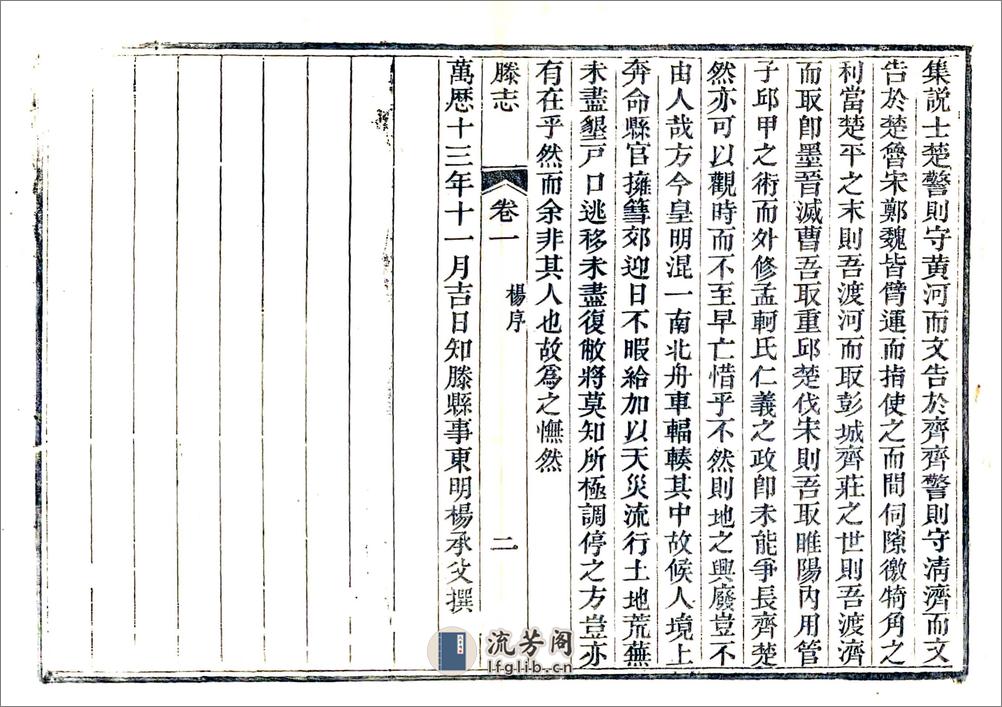 集説士楚警則守黄河而文告於齊齊警則守清濟而文
告於楚魯宋鄭魏皆臂運而指使之而間伺隙徼犄角之
利當楚平之末則吾渡河而取彭城齊莊之世則吾渡濟
而取卽墨晉滅曹吾取重邱楚伐宋則吾取睢陽内用管
子邱甲之術而外修孟軻氏仁義之政卽未能爭長齊楚
然亦可以觀時而不至早亡惜乎不然則地之興廢豈不
由人哉方今皇明混一南北舟車輻輳其中故候人境上
奔命縣官擁篲郊迎日不暇給加以天災流行土地荒蕪
未盡墾戸口逃移未盡復敝將莫知所極調停之方豈亦
有在乎然而余非其人也故爲之憮然
滕志
卷一
楊序
二
萬歷十三年十一月吉日知滕縣事東明楊承父撰
流芳阁
lfglib.cn